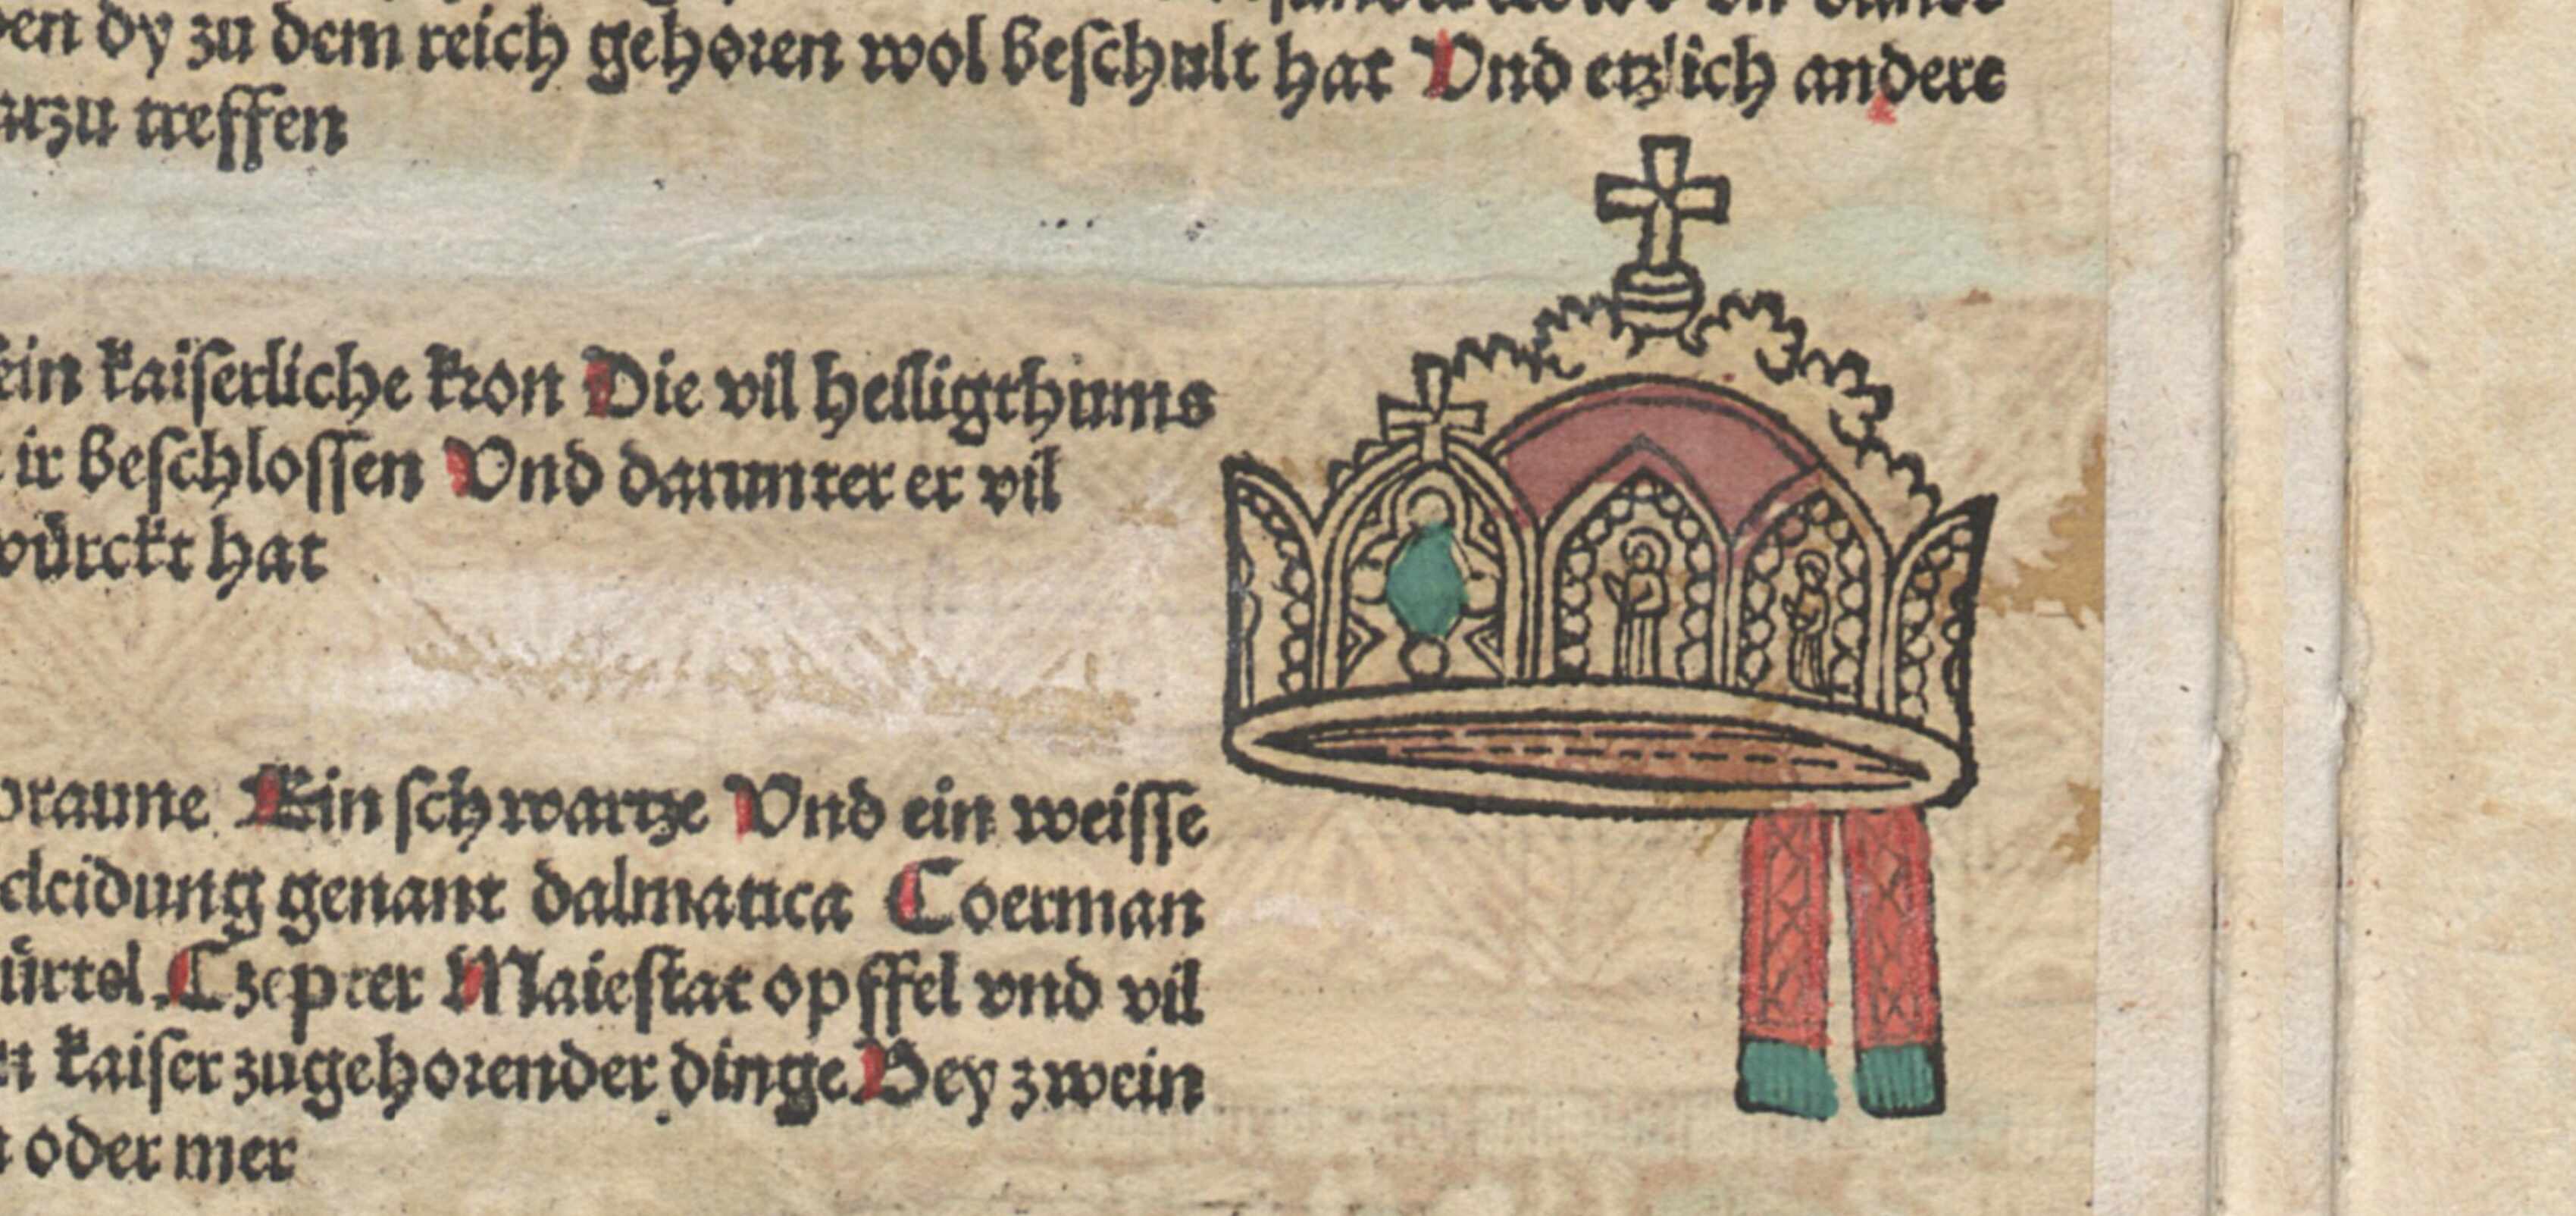 dy zu dem reich gehoren wol beschult hat Vnd etzlich andere
treffen
kaiserliche kron Die vil heiligthums
ir beschlossen Vnd darunter er vil
hat
Ein schwartze Vnd ein weisse
genant dalmatica Coerman
Czepter Maiestat opffel vnd vil
kaiser zugehorender dinge Bey zwein
oder mer